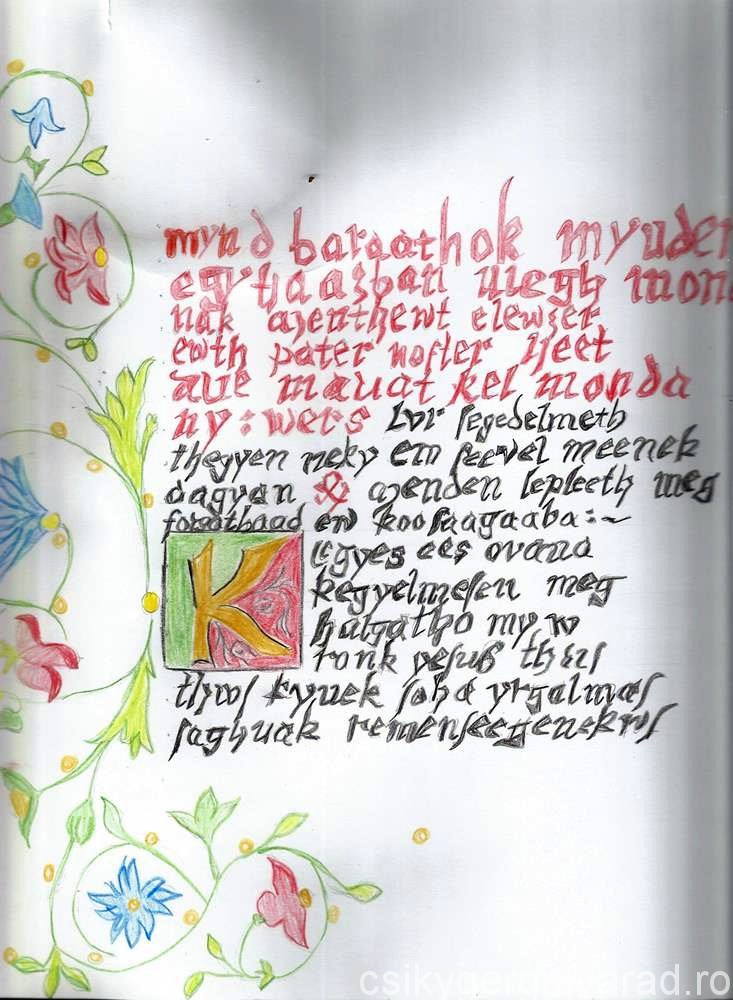 mynd baraathok myuden
egyhaazban ulegh mond
nak azenthewt elewzer
ewth pater noster Heet
aue mauat kel monda
ny : wers Wr segedelmeth
thegyen neky em seevel meenek
dagyan & azenden lepleeth meg
forgathaad en koosaagaaba :~
K egyes ees ovana
kegyelmesen meg
halgatho my w
ronk yesuß this
thws kynek soha yrgalmas
saghuak remenseegenekros
csikygergelyarad.ro